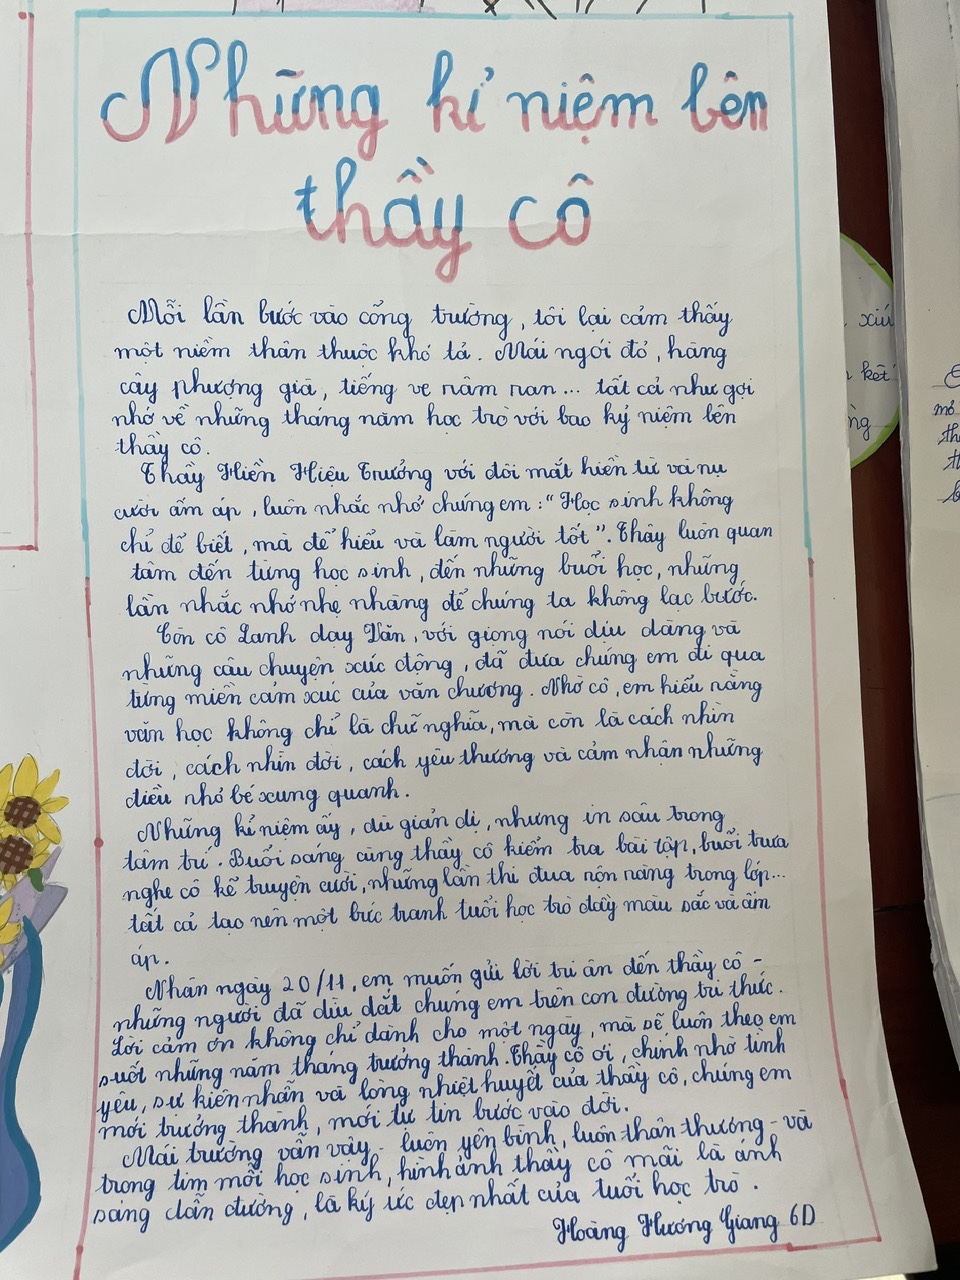 Những kỉ niệm bên
thầy cô
Mỗi lần bước vào cổng trường, tôi lại cảm thấy
một niềm thân thuộc khó tả. Mái ngói đỏ, hàng
cây phượng già, tiếng ve râm ran... tất cả như gợi
nhớ về những tháng năm học trò với bao kỷ niệm bên
thầy cô.
Thầy Hiền Hiệu Trưởng với đôi mắt hiền từ và nụ
cười ấm áp, luôn nhắc nhở chúng em: "Học sinh không
chỉ để biết, mà để hiểu và làm người tốt". Thầy luôn quan
tâm đến từng học sinh, đến những buổi học, những
lần nhắc nhở nhẹ nhàng để chúng ta không lạc bước.
Còn cô Lanh dạy Văn, với giọng nói dịu dàng và
những câu chuyện xúc động, đã đưa chúng em đi qua
từng miền cảm xúc của văn chương. Nhờ cô, em hiểu rằng
văn học không chỉ là chữ nghĩa, mà còn là cách nhìn
đời, cách nhìn đời, cách yêu thương và cảm nhận những
điều nhỏ bé xung quanh.
Những kỉ niệm ấy, dù giản dị, nhưng in sâu trong
tâm trí. Buổi sáng cùng thầy cô kiểm tra bài tập, buổi trưa
nghe cô kể truyện cười, những lần thi đua rộn ràng trong lớp...
tất cả tạo nên một bức tranh tuổi học trò đầy màu sắc và ấm
áp.
Nhân ngày 20/11, em muốn gửi lời tri ân đến thầy cô -
những người đã dìu dắt chúng em trên con đường tri thức.
Lời cảm ơn không chỉ dành cho một ngày, mà sẽ luôn theo em
suốt những năm tháng trưởng thành. Thầy cô ơi, chính nhờ tình
yêu, sự kiên nhẫn và lòng nhiệt huyết của thầy cô, chúng em
mới trưởng thành, mới tự tin bước vào đời.
Mái trường vẫn vậy - luôn yên bình, luôn thân thương - và
trong tim mỗi học sinh, hình ảnh thầy cô mãi là ánh
sáng dẫn đường, là ký ức đẹp nhất của tuổi học trò.
Hoàng Hương Giang 6D
xiú
kết